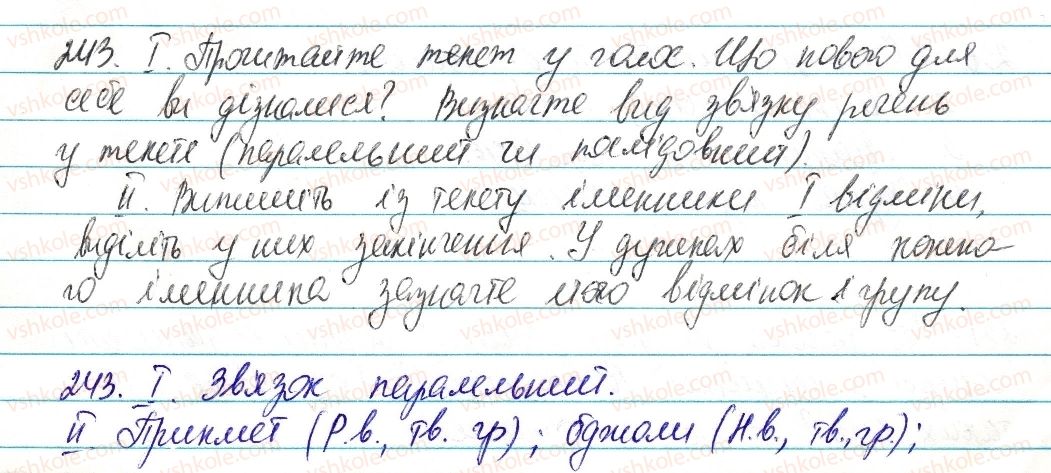 243. I. Прочитайте текст у голос. Що нового для
себе ви дізналися? Визначте вид зв'язку речень
у тексті (паралельний чи послідовний).
II. Випишіть із тексту іменники I відміни,
виділіть у них закінчення. У дужках біля кожно-
го іменника зазначте його відмінок і групу.
243. I. Зв'язок паралельний.
II. Прикмет (Р.в., тв. гр); бджоли (Н.в., тв., гр.);